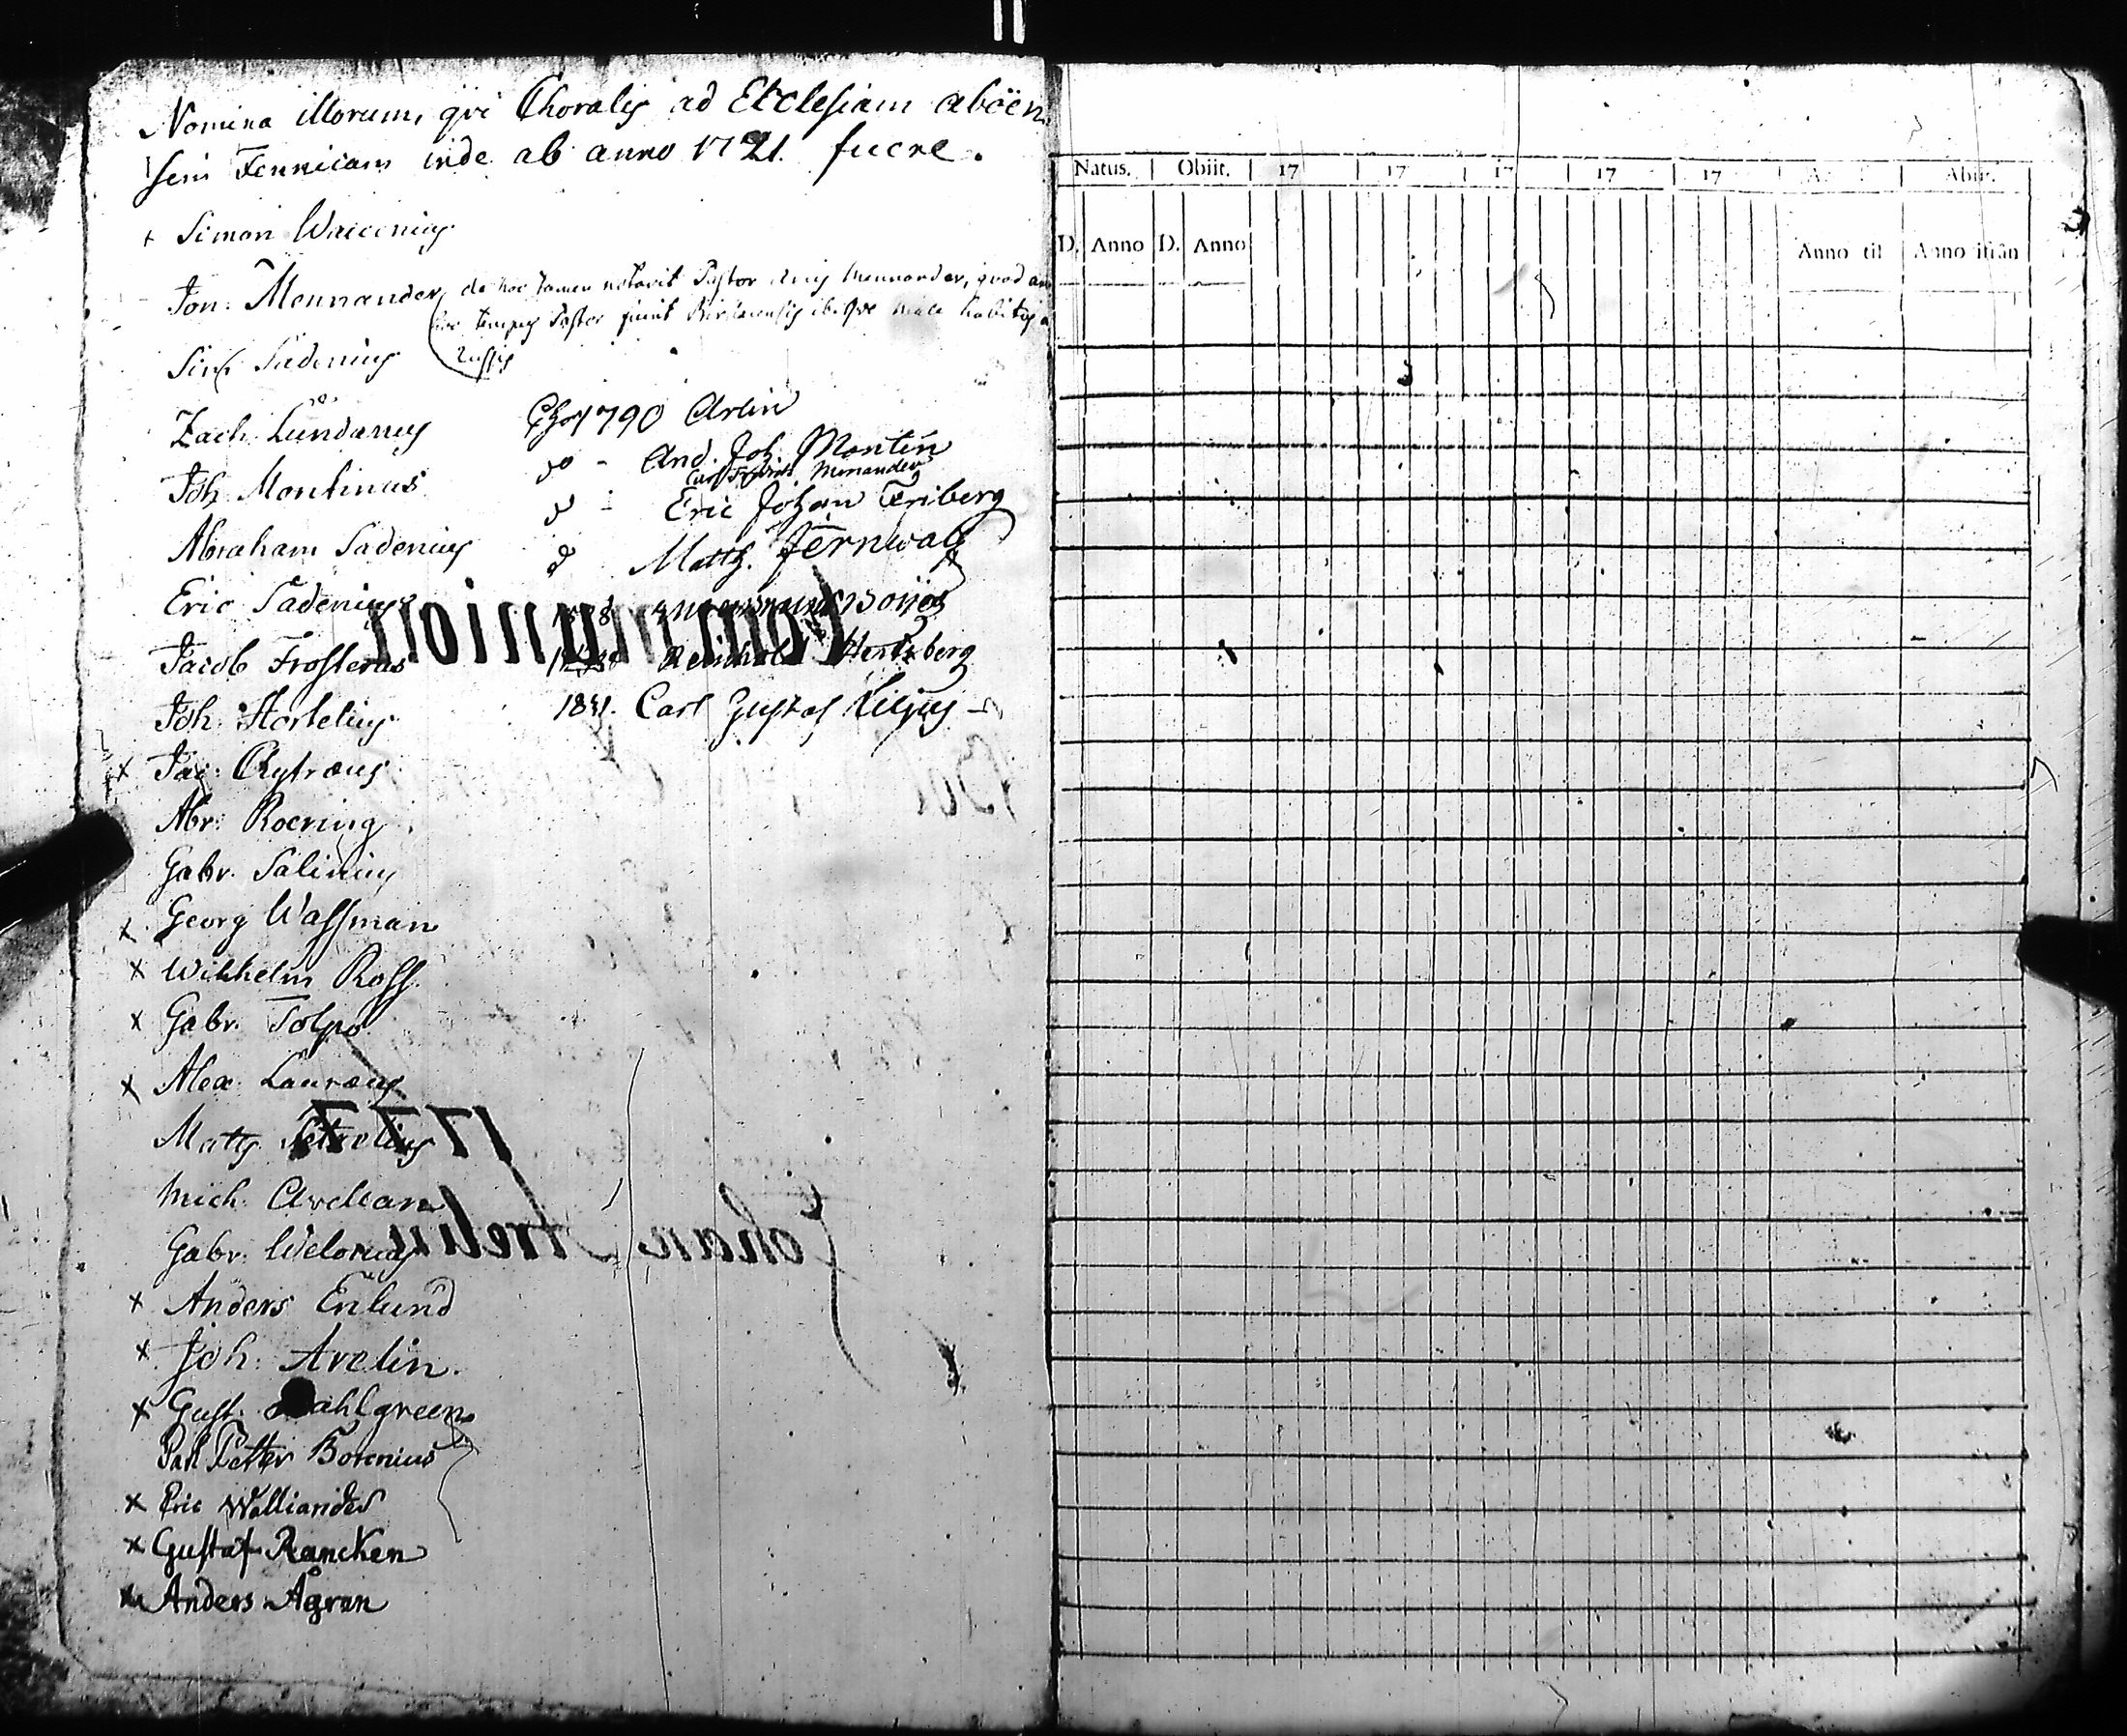 Nomina illorum, qvi Choralis ad Ecclesiam aboën
sem Fennicam inde ab anno 1721. fuere.
+ Simon
Jon: Mennander de hoc tamen notavit Pastor Mennander, qvod
hoc tempus Pastor fuit ibiqve male habitus a
Russis
Sim: Sadenius
Zach: Lundanus
Joh: Montinus
Abraham Sadenius
Eric Sadenius
Jacob Frosterus
Joh: Hortelius
x Jac: Chytræus
Abr: Roering
Gabr. Salinius
x Georg Wassman
x Wilhelm Ross.
x Gabr. Tolpo
x Alex: Lauræus
Matts
Mich: Avellan
Gabr: Welonius
x Anders Enlund
x Joh: Arelin.
x Gust: Dahlgreen
Petter Borenius
x Eric Walliander
x Gustaf Rancken
x Anders Ågren
1790 Arlin
do - And. Joh. Montin
Menander
do - Eric Johan Friberg
do Matth. Jernwall
Reinhold Hertzberg
1831. Carl Gustaf Liljus
Communion
1777
Johan Arelin
Natus. Obiit. 17 17 17 17 17 Abiit.
D. Anno D. Anno Anno til Anno ifrån